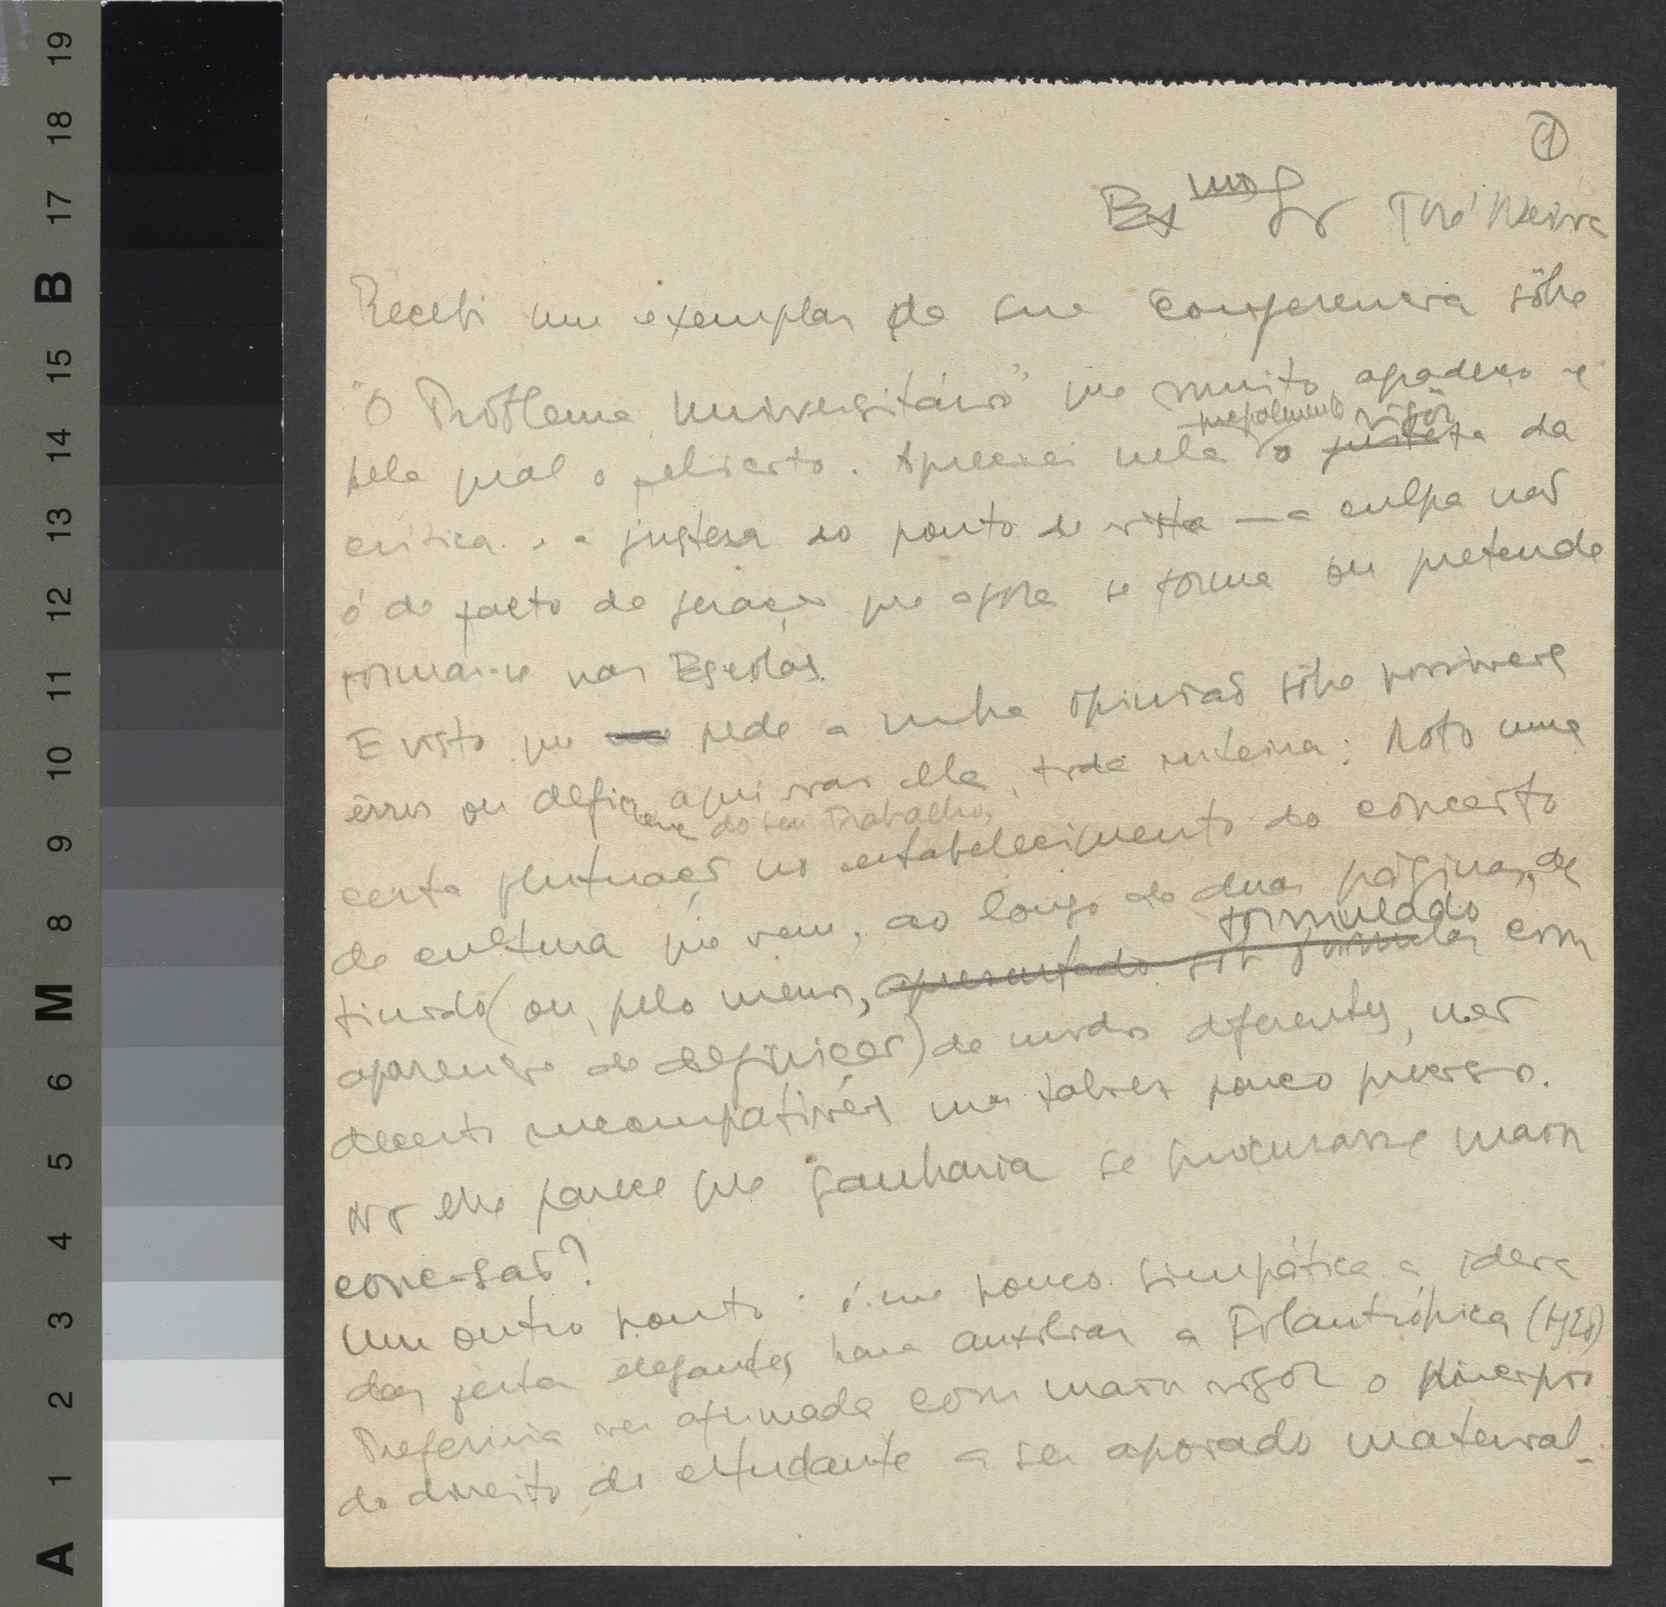 ①
Exmo Sr
Recebi um exemplar da sua conferencia sôbre
"O Problema Universitário" que muito agradeço e
principalmente rigôr
pela qual o felicito. Apreciei nela o justeza da
critica e a justeza do ponto de vista — a culpa não
é de facto da geração que agora se forma ou pretende
formar-se nas Escolas.
E visto que pede a minha opinião sôbre possiveis
êrros ou deficiencias do seu trabalho,
aqui vai ela, toda inteira: Noto uma
certa flutuação no estabelecimento do conceito
de cultura que vem, ao longo de duas páginas, de
formulado
finido (ou, pelo menos, apresentado sob formulas com
aparencia de definição) de modos diferentes, não
decerto incompativeis mas talvez pouco preciso.
Não lhe parece que ganharia se procurasse maior
concisão?
Um outro ponto: é-me pouco simpática a ideia
das festas elegantes para auxiliar a Filantrópica
Preferiria ver afirmado com maior rigor o principio
do direito do estudante a ser apoiado material-
A 1 2 3 4 5 6 M 8 9 10 11 12 13 14 15 B 17 18 19